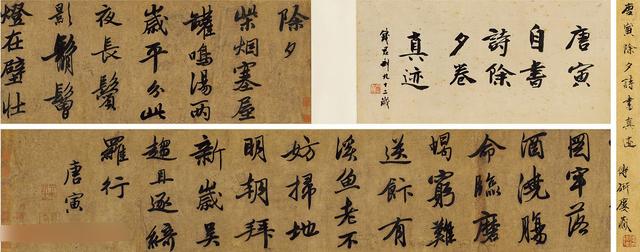 唐寅除夕詩書真迹
唐寅
自書
詩除
夕卷
真迹
錢君匋九十二歲
除夕
柴烟塞屋
罐鳴湯两
歲平分此
夜長鬢
影鬅鬙
燈在壁壮
圖牢落
酒澆腸
命臨磨
蝎窮難
送飰有
溪魚老不
妨掃地
明朝拜
新歲吴
趨且逐綺
羅行
唐寅